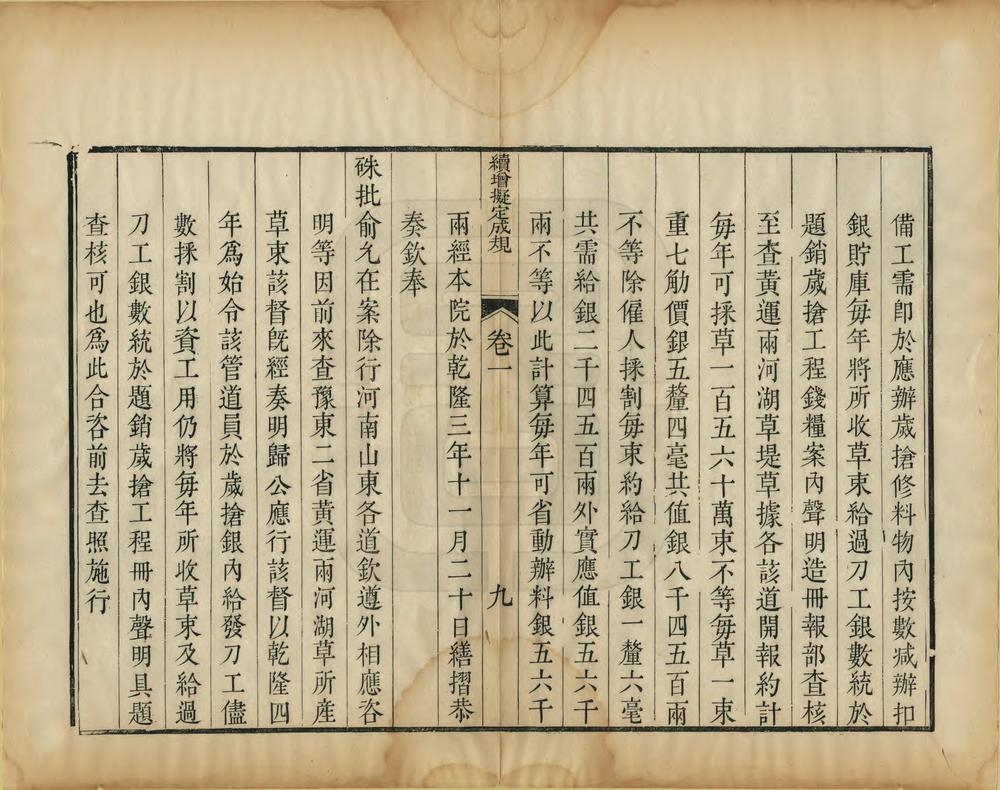 備工需卽於應辦歲搶修料物內按數減辦扣
銀貯庫每年將所收草束給過刀工銀數統於
題銷歲搶工程錢糧案內聲明造冊報部查核
至查黃運兩河湖草堤草據各該道開報約計
每年可採草一百五六十萬束不等每草一束
重七觔價銀五釐四毫共值銀八千四五百兩
不等除僱人採割每束約給刀工銀一釐六毫
共需給銀二千四五百兩外實應值銀五六千
兩不等以此計算每年可省動辦料銀五六千
續增擬定成規
卷一
九
兩經本院於乾隆三年十一月二十日繕摺恭
奏欽奉
硃批俞允在案除行河南山東各道欽遵外相應咨
明等因前來查豫東二省黃運兩河湖草所產
草束該督旣經奏明歸公應行該督以乾隆四
年爲始令該管道員於歲搶銀內給發刀工儘
數採割以資工用仍將每年所收草束及給過
刀工銀數統於題銷歲搶工程冊內聲明具題
查核可也爲此合咨前去查照施行